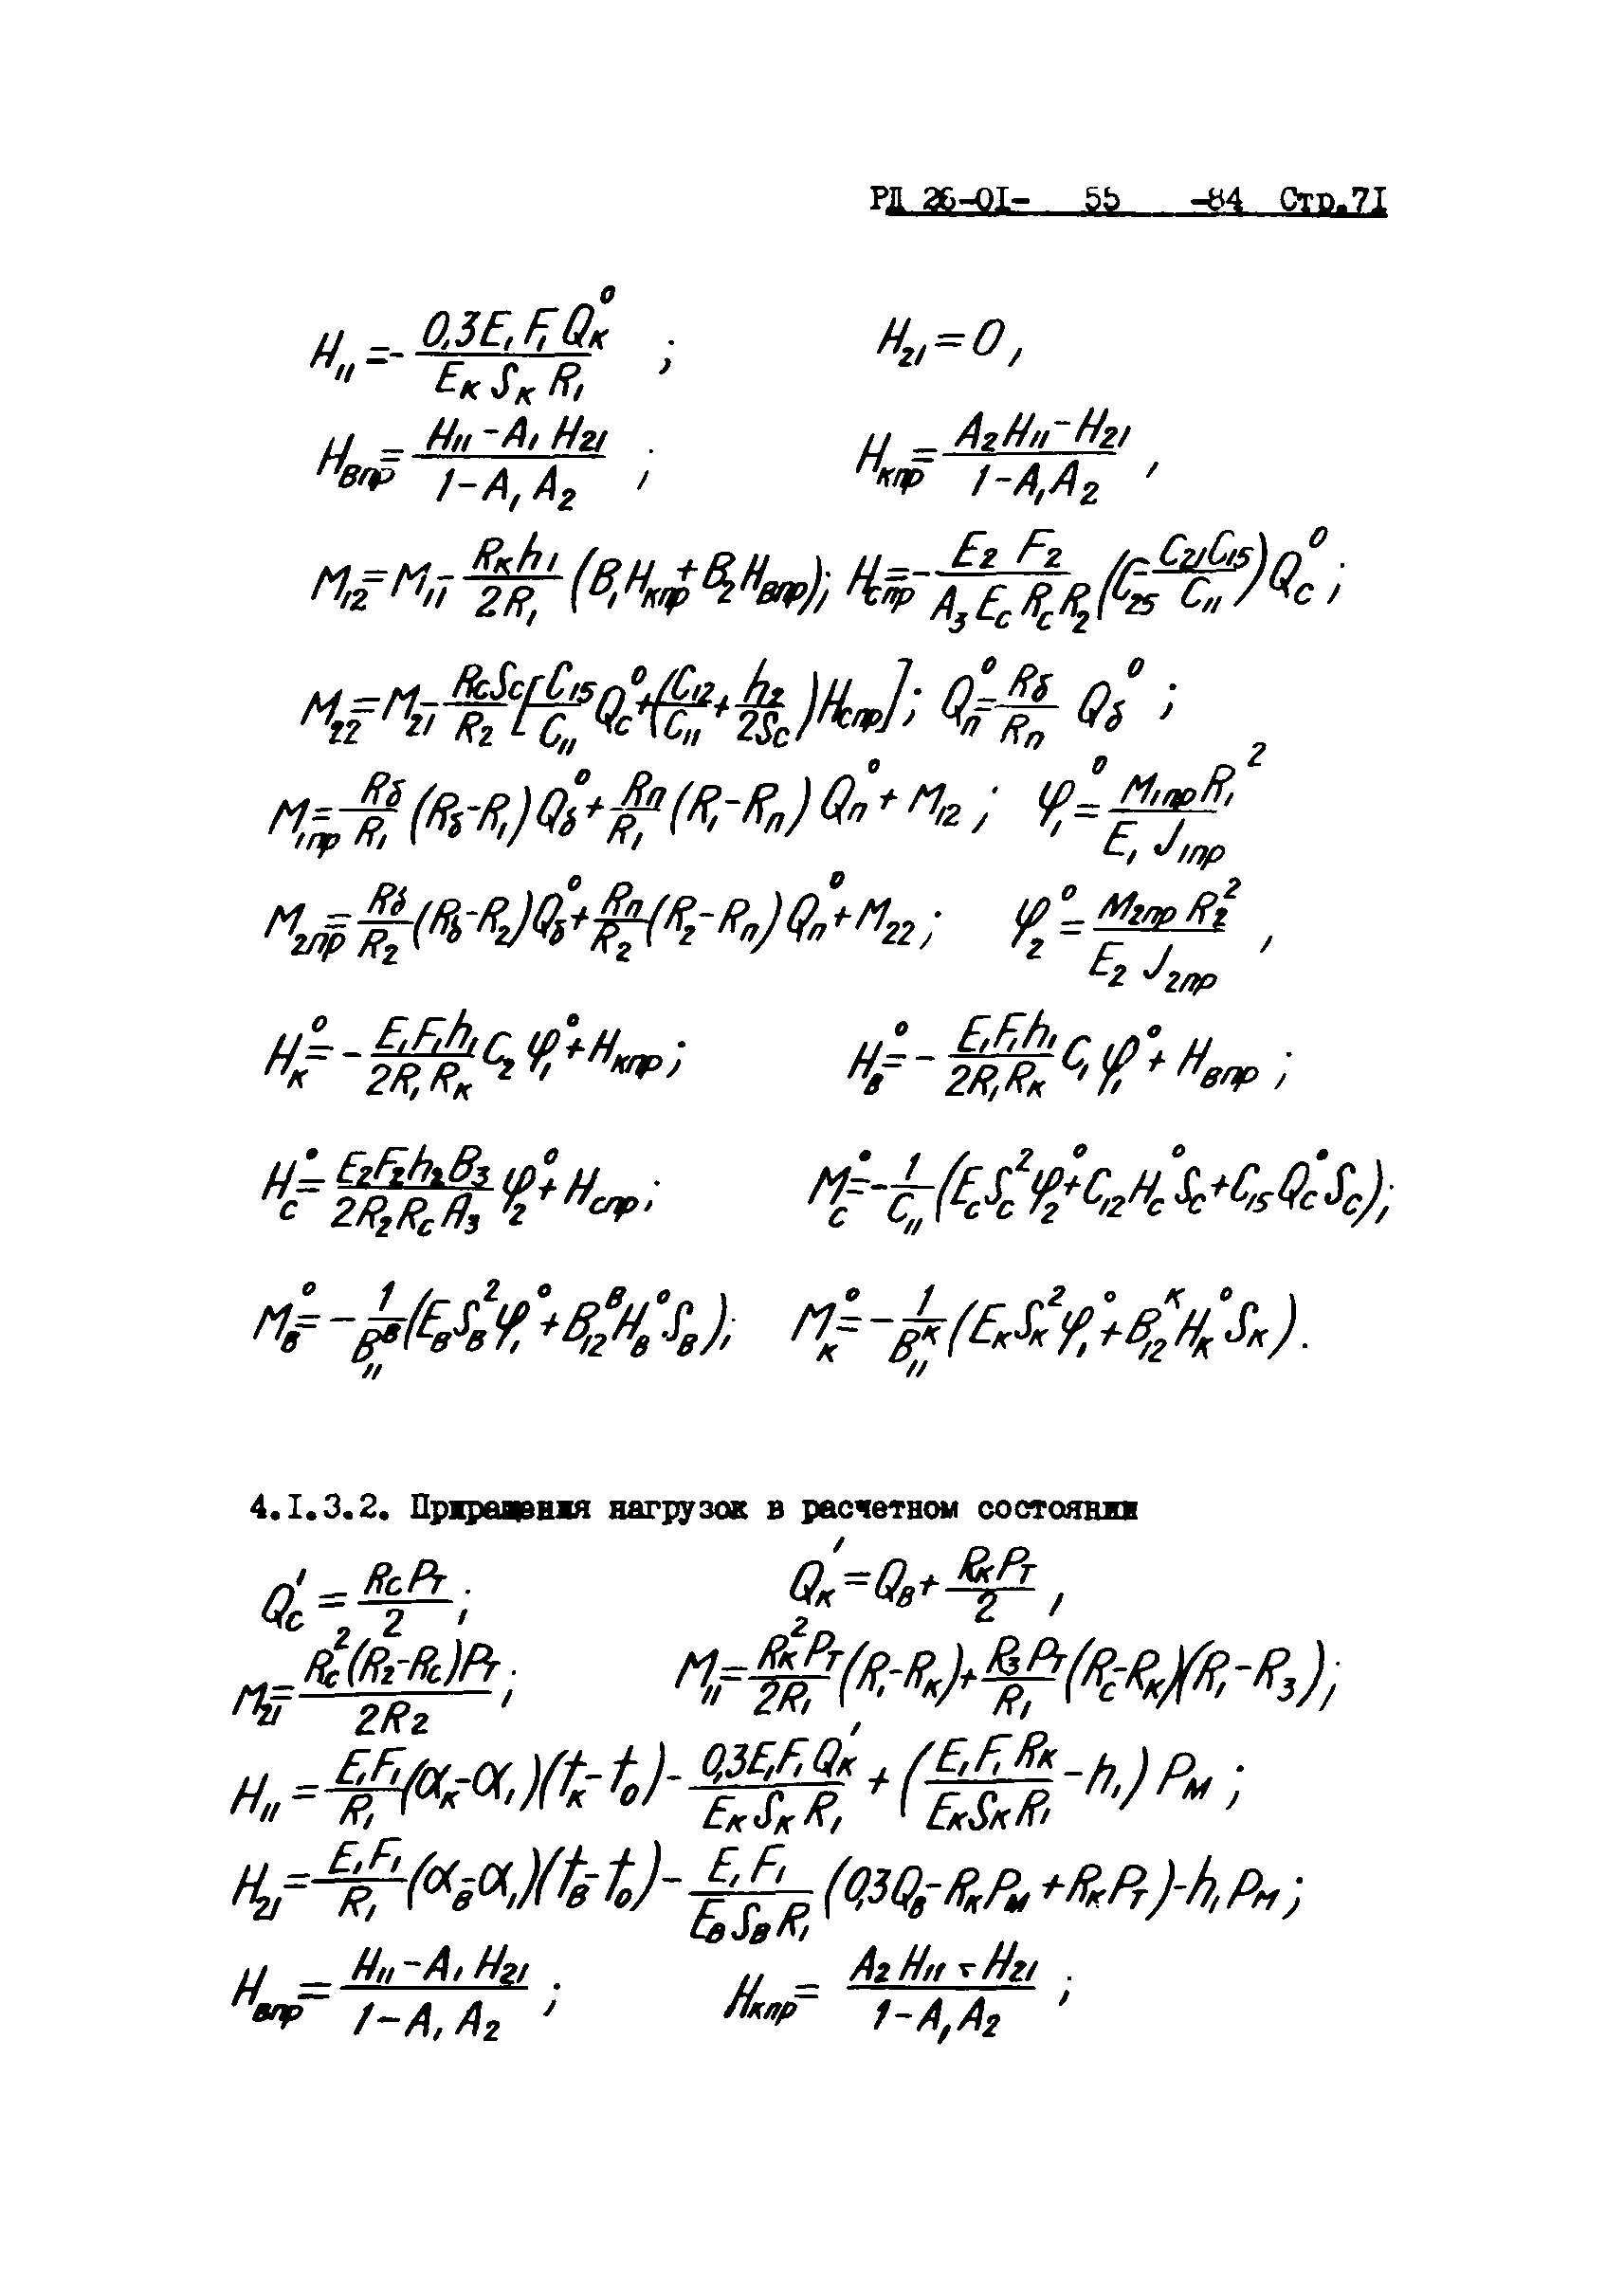 РД 26-01- 55 -84 Стр.71
H₁₁ = - (0,3E₁F₁Qк⁰)/(Eк Sк R₁) ; H₂₁ = 0 ,
Hвпр = (H₁₁ - A₁ H₂₁)/(1 - A₁ A₂) ; Hкпр = (A₂ H₁₁ - H₂₁)/(1 - A₁ A₂) ,
M₁₂ = M₁₁ - (Rк h₁)/(2R₁) (B₁ Hкпр + B₂ Hвпр); Hспр = - (E₂ F₂)/(A₃ Eс Rс R₂) (C₂₅ - (C₂₁C₁₅)/C₁₁) Qс⁰ ;
M₂₂ = M₂₁ - (RсSс)/R₂ [C₁₅/C₁₁ Qс⁰ + (C₁₂/C₁₁ + h₂/(2Sс)) Hспр] ; Qп⁰ = Rб/Rп Qб⁰ ;
M₁пр = Rб/R₁ (Rб - R₁) Qб⁰ + Rп/R₁ (R₁ - Rп) Qп⁰ + M₁₂ ; φ₁⁰ = (M₁пр R₁²)/(E₁ J₁пр)
M₂пр = Rб/R₂ (Rб - R₂) Qб⁰ + Rп/R₂ (R₂ - Rп) Qп⁰ + M₂₂ ; φ₂⁰ = (M₂пр R₂²)/(E₂ J₂пр) ,
Hк⁰ = - (E₁F₁h₁)/(2R₁Rк) C₂ φ₁⁰ + Hкпр ; Hв⁰ = - (E₁F₁h₁)/(2R₁Rк) C₁ φ₁⁰ + Hвпр ;
Hс⁰ = (E₂F₂h₂B₃)/(2R₂RсA₃) φ₂⁰ + Hспр ; Mс⁰ = - 1/C₁₁ (EсSс²φ₂⁰ + C₁₂Hс⁰Sс + C₁₅Qс⁰Sс);
Mв⁰ = - 1/B₁₁ᴮ (EвSв²φ₁⁰ + B₁₂ᴮHв⁰Sв); Mк⁰ = - 1/B₁₁ᴷ (EкSк²φ₁⁰ + B₁₂ᴷHк⁰Sк).
4.1.3.2. Приращения нагрузок в расчетном состоянии
Qс′ = (RсPт)/2 ; Qк′ = Qв + (RкPт)/2 ,
M₂₁ = (Rс²(R₂ - Rс)Pт)/(2R₂) ; M₁₁ = (Rк²Pт)/(2R₁) (R₁ - Rк) + (R₃Pт)/R₁ (Rс - Rк)(R₁ - R₃) ;
H₁₁ = (E₁F₁)/R₁ (αк - α₁)(tк - t₀) - (0,3E₁F₁Qк′)/(EкSкR₁) + ((E₁F₁Rк)/(EкSкR₁) - h₁) Pм ;
H₂₁ = (E₁F₁)/R₁ (αв - α₁)(tв - t₀) - (E₁F₁)/(EвSвR₁) (0,3Qв - RкPм + RкPт) - h₁Pм ;
Hвпр = (H₁₁ - A₁ H₂₁)/(1 - A₁ A₂) ; Hкпр = (A₂ H₁₁ - H₂₁)/(1 - A₁ A₂) ;